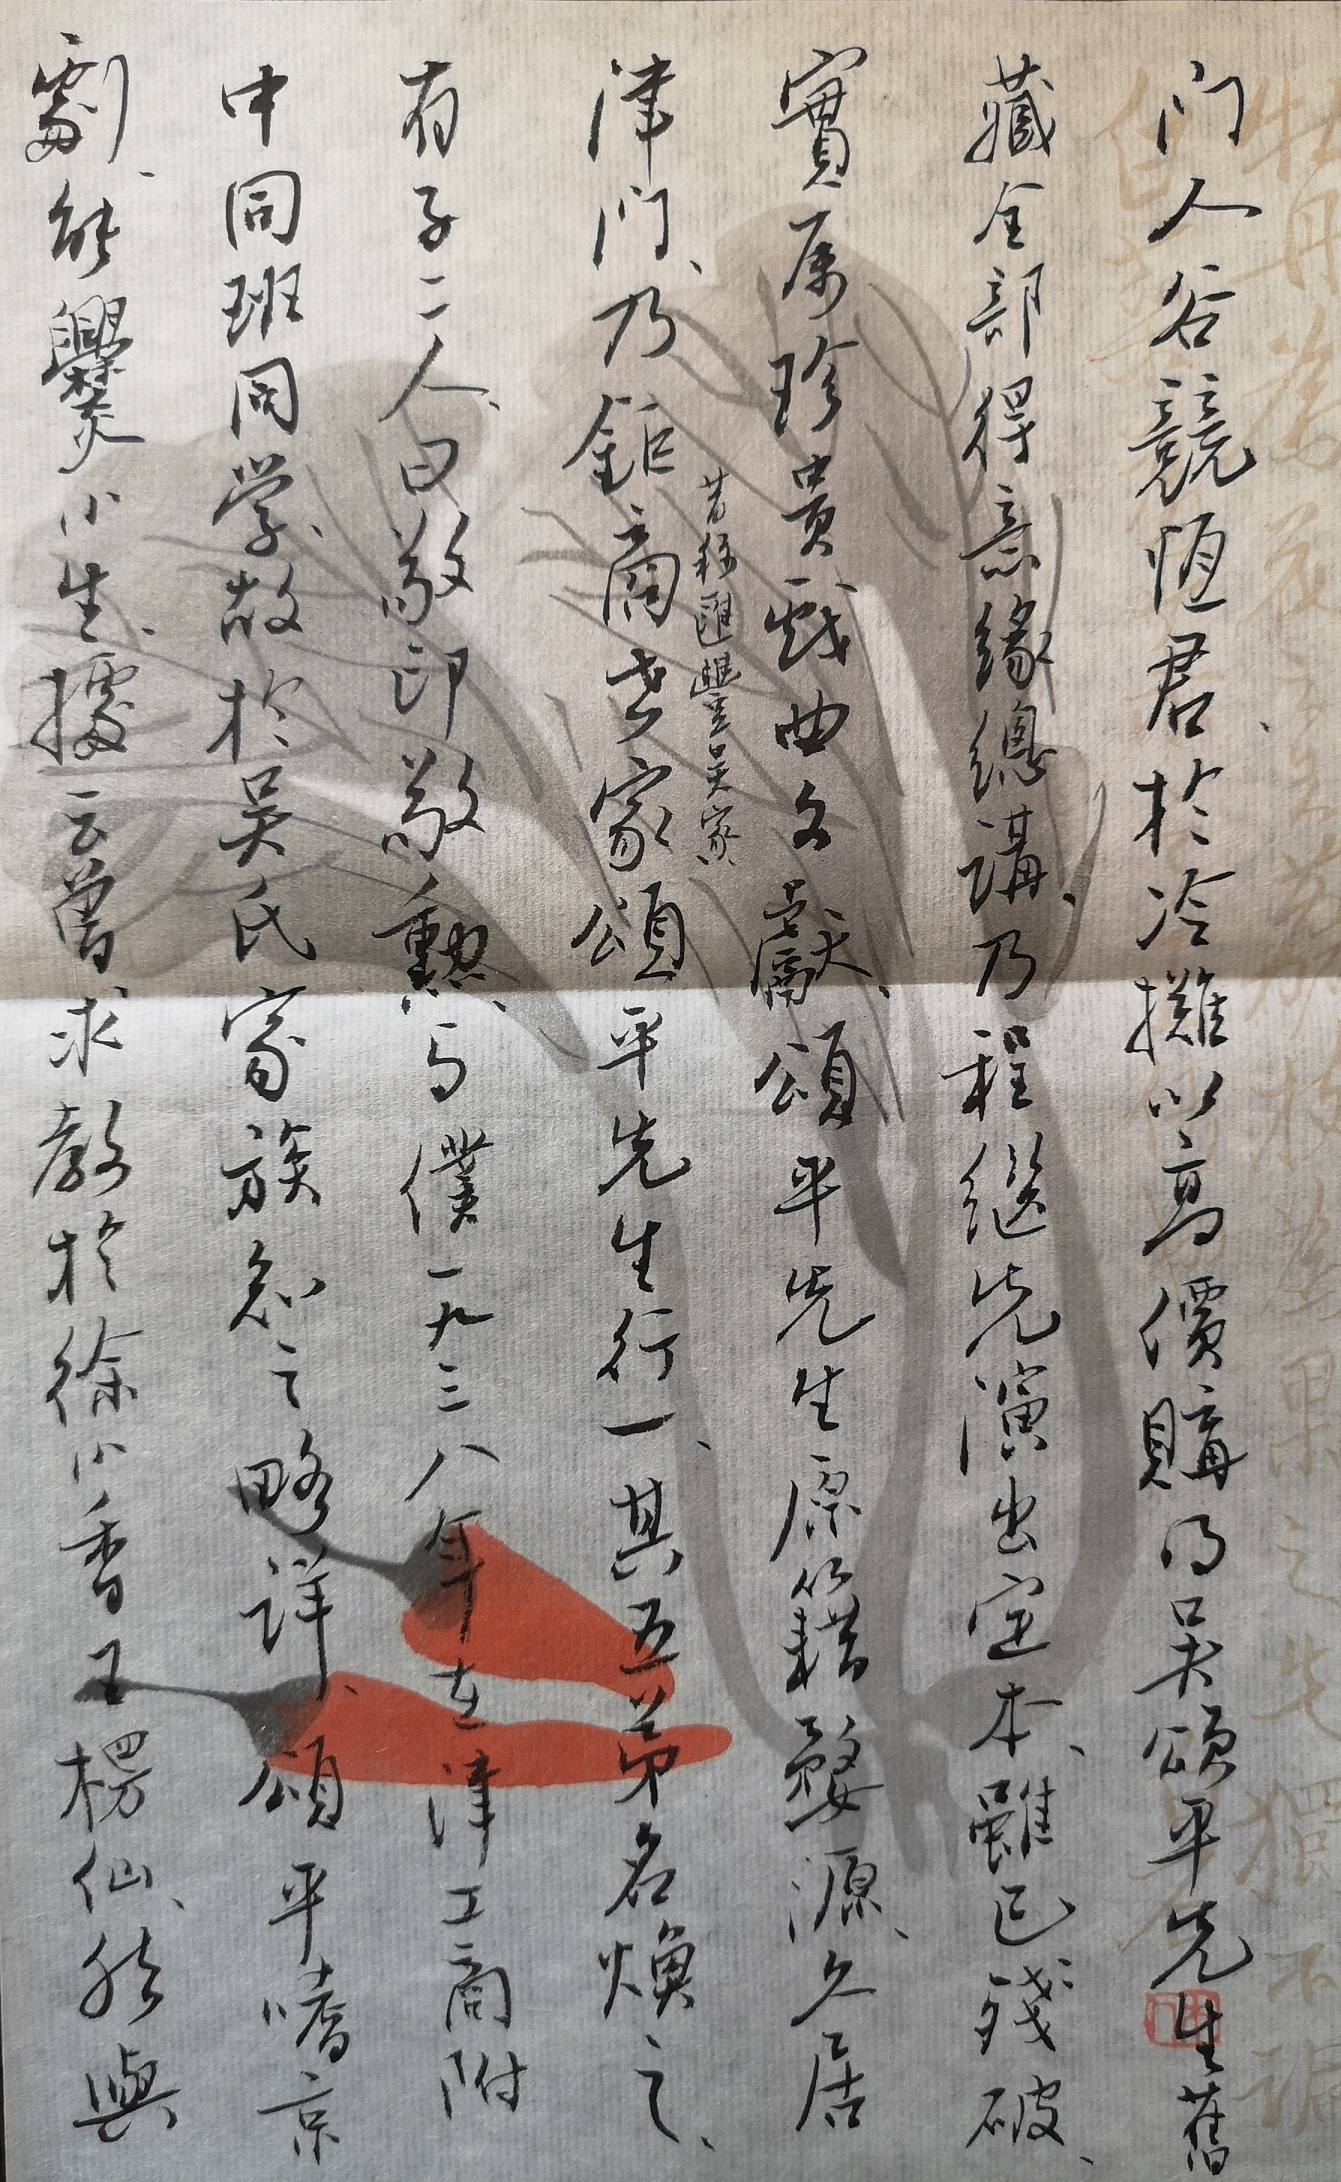 门人谷競恒君、於冷攤以髙價購得吴頌平先生舊
藏全部得意緣總講、乃程继先演出定本、雖已殘破、
實屬珍貴戲曲文獻、頌平先生原籍婺源、久居
津门、乃鉅商世家頌平先生行一、其五弟名煥之、
昔称匯豐吴家
有子二人、曰敬印敬勳、与僕一九三八年在津工商附
中同班同学、故於吴氏家族知之略详、頌平嗜京
劇、能爨小生、據云曾求教於徐小香王楞仙、然與